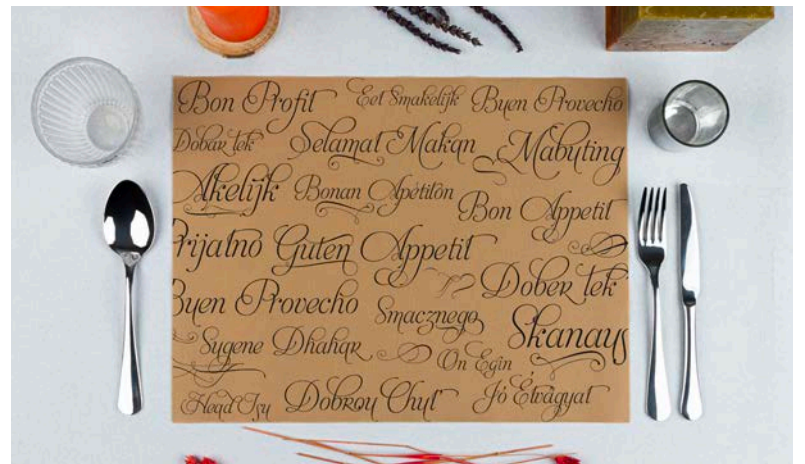 Bon Profit Eet Smakelijk Buen Provecho
Dobar tek Selamat Makan Mabuting
Akelijk Bonan Apétitón Bon Appetit
Prijatno Guten Appetit
Dober tek
Buen Provecho Smacznego Skanaus
Sygene Dhahar On Egin
Dobrou Chut Jó Étvágyat